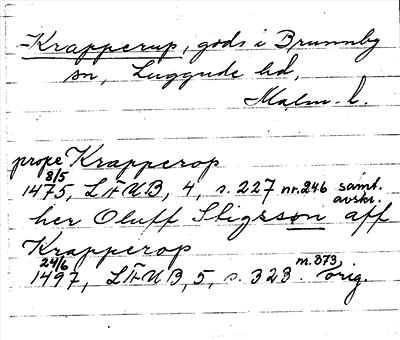 -Krapperup, gods i Brunnby
sn, Luggude hd,
Malm. l.
prope Krapperop
8/5 1475, LÄUB, 4, s. 227 nr. 246 samt. avskr.
her Oluff Stigsson aff
Krapperop
24/6 1497, LÄUB, 5, s. 323 nr. 373, orig.